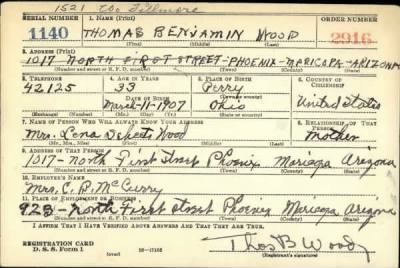 1521 Fillmore
SERIAL NUMBER 1. NAME (Print) ORDER NUMBER
1140 THOMAS BENJAMIN WOOD 2916
(First) (Middle) (Last)
2. ADDRESS (Print)
1017 NORTH FIRST STREET-PHOENIX-MARICOPA-ARIZONA
(Number and street or R. F. D. number) (Town) (County) (State)
3. TELEPHONE 4. AGE IN YEARS 5. PLACE OF BIRTH 6. COUNTRY OF CITIZENSHIP
42125 33 Perry United States
DATE OF BIRTH (Town or county)
March-11-1907 Ohio
(Mo.) (Day) (Yr.) (State or country)
7. NAME OF PERSON WHO WILL ALWAYS KNOW YOUR ADDRESS 8. RELATIONSHIP OF THAT PERSON
Mrs. Lena Wood mother
(Mr., Mrs., Miss) (First) (Middle) (Last)
9. ADDRESS OF THAT PERSON
1017-North First Street Phoenix Maricopa Arizona
(Number and street or R. F. D. number) (Town) (County) (State)
10. EMPLOYER'S NAME
Mrs. C. P. McCurry
11. PLACE OF EMPLOYMENT OR BUSINESS
923-North First Street Phoenix Maricopa Arizona
(Number and street or R. F. D. number) (Town) (County) (State)
I AFFIRM THAT I HAVE VERIFIED ABOVE ANSWERS AND THAT THEY ARE TRUE.
REGISTRATION CARD
D. S. S. Form 1
Thos B Wood
(Registrant's signature)